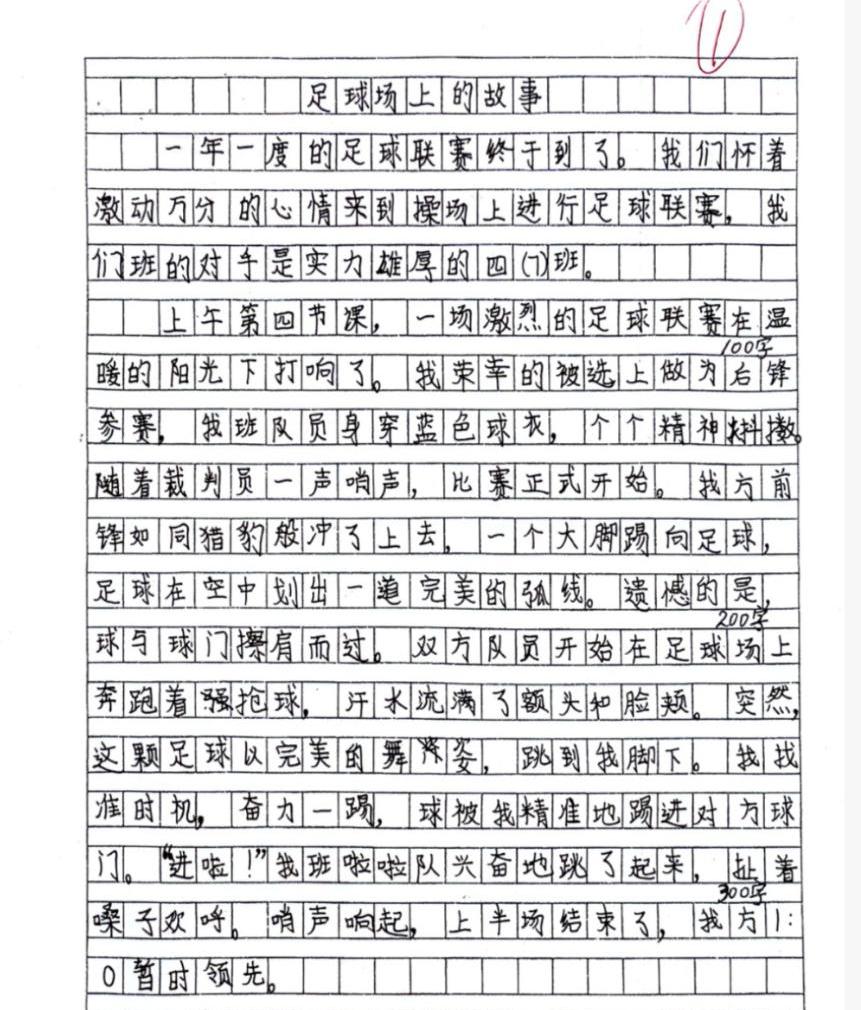 11
足球场上的故事
一年一度的足球联赛终于到了。我们怀着
激动万分的心情来到操场上进行足球联赛，我
们班的对手是实力雄厚的四(7)班。
上午第四节课，一场激烈的足球联赛在温
100字
暖的阳光下打响了。我荣幸的被选上做为右锋
参赛，我班队员身穿蓝色球衣，个个精神抖擞。
随着裁判员一声哨声，比赛正式开始。我方前
锋如同猎豹般冲了上去，一个大脚踢向足球，
足球在空中划出一道完美的弧线。遗憾的是，
200字
球与球门擦肩而过。双方队员开始在足球场上
奔跑着强抢球，汗水流满了额头和脸颊。突然，
这颗足球以完美的舞姿，跳到我脚下。我找
准时机，奋力一踢，球被我精准地踢进对方球
门。“进啦！”我班啦啦队兴奋地跳了起来，扯着
300字
嗓子欢呼。哨声响起，上半场结束了，我方1:
0暂时领先。